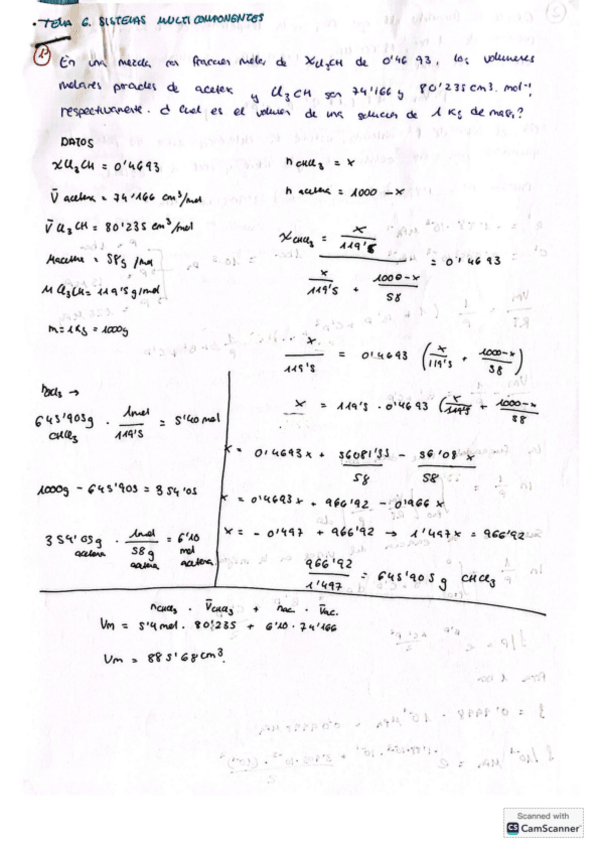 · TEMA 6. SISTEMAS MULTICOMPONENTES
1. En una mezcla con fracción molar de XCl3CH de 0'4693, los volumenes
molares parciales de acetona y Cl3CH son 74'166 y 80'235 cm3. mol-1,
respectivamente. ¿ Cual es el volumen de una solucion de 1 Kg de masa?
DATOS
xCl3CH = 0'4693
V̄ acetona = 74'166 cm3/mol
V̄ Cl3CH = 80'235 cm3/mol
Macetona = 58g/mol
M Cl3CH = 119'5g/mol
m = 1Kg = 1000g
n CHCl3 = x
n acetona = 1000 - x
xCHCl3 = (x / 119'5) / (x / 119'5 + 1000-x / 58) = 0'4693
x / 119'5 = 0'4693 (x / 119'5 + 1000-x / 58)
x = 119'5 · 0'4693 (x / 119'5 + 1000-x / 58)
x = 0'4693x + 56081'35 / 58 - 56'08x / 58
x = 0'4693x + 966'92 - 0'966x
x = - 0'497 + 966'92 → 1'497x = 966'92
966'92 / 1'497 = 645'905 g CHCl3
nCHCl3 →
645'905g CHCl3 · 1mol / 119'5 = 5'40 mol
1000g - 645'905 = 354'05
354'05g acetona · 1mol acetona / 58g acetona = 6'10 mol acetona
nCHCl3 · V̄CHCl3 + nac. · V̄ac.
Vm = 5'4mol · 80'235 + 6'10 · 74'166
Vm = 885'68cm3.
Scanned with
CS CamScanner